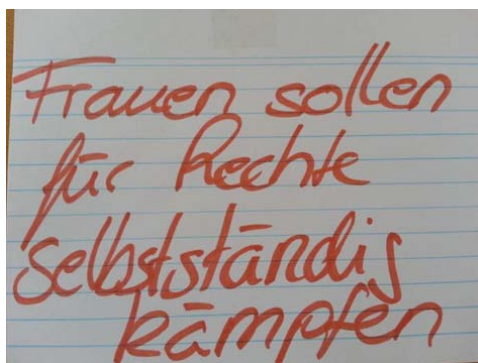 Frauen sollen
für Rechte
selbstständig
kämpfen